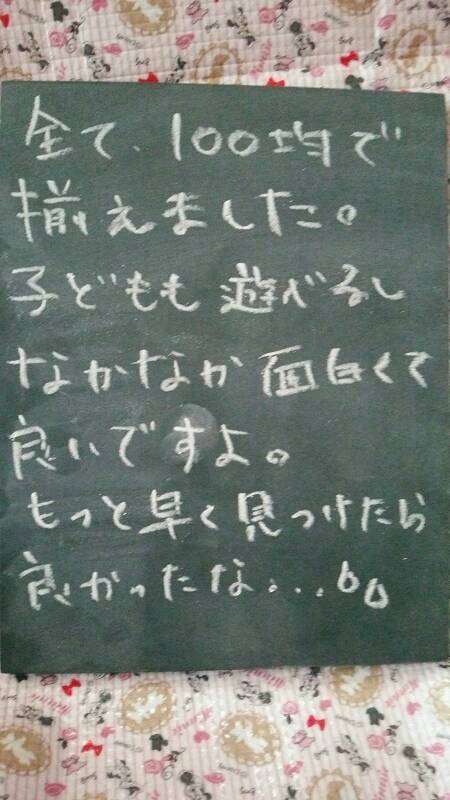 全て、100均で
揃えました。
子どもも遊べるし
なかなか面白くて
良いですよ。
もっと早く見つけたら
良かったな...